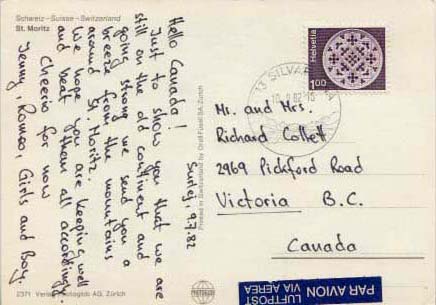 Schweiz - Suisse - Switzerland
St. Moritz
Hello Canada!
Surlej, 9.7.82
Just to show you that we are
still on the old continent and
going strong we send you a
breeze from the mountains
around St. Moritz.
We hope you are keeping well
and beat them all accordingly.
Cheerio for now
Jenny, Romeo, Girls and Boy.
2371
AG, Zürich
Printed in Switzerland by Orell Füssli SA, Zürich
Helvetia
1.00
SILVAPLANA
Mr. and Mrs.
Richard Collett
2969 Pickford Road
Victoria B.C.
Canada
PAR AVION
LUFTPOST
VIA AEREA